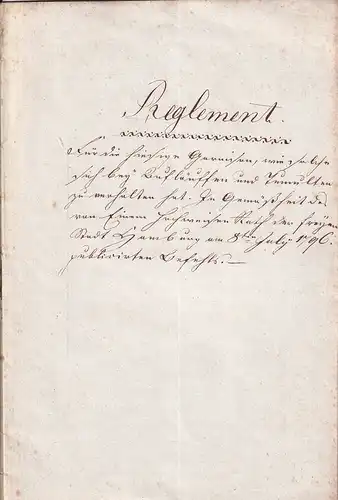 Reglement.
Für die hiesige Garnison, wie solche
sich bey Aufläuffen und Tumulten
zu verhalten hat. In Gemäßheit des
von Einem Hochweisen Rath der freyen
Stadt Hamburg am 8ten July 1796.
publicirten Befehls. —